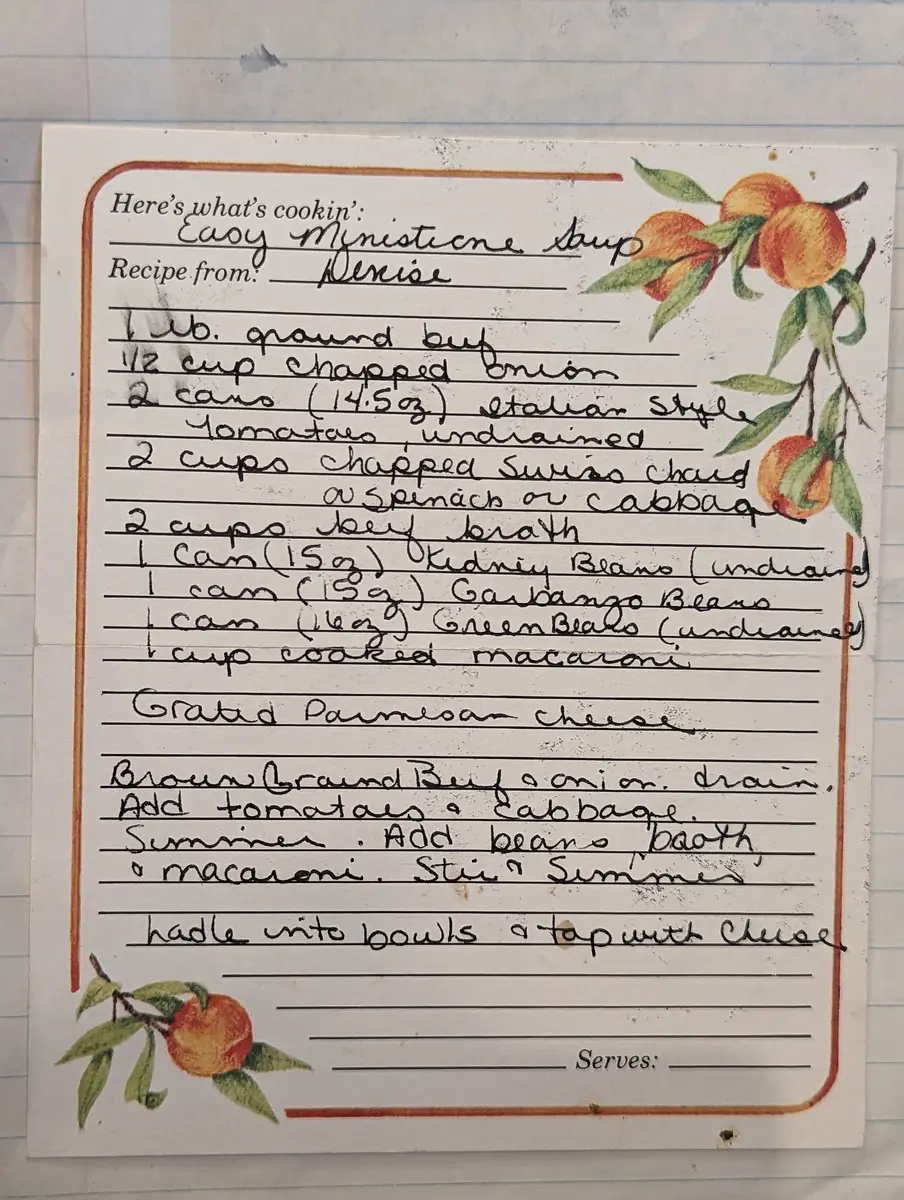 Here's what's cookin':
Easy Ministicne Soup
Recipe from: Denise
1 lb. ground beef
1/2 cup chopped onion
2 cans (14.5oz) Italian Style
Tomatoes, undrained
2 cups chopped Swiss chard
or spinach or cabbage
2 cups beef broth
1 can (15oz) Kidney Beans (undrained)
1 can (15oz) Garbanzo Beans
1 can (16oz) Green Beans (undrained)
1 cup cooked macaroni
Grated Parmesan cheese
Brown Ground Beef & onion. drain.
Add tomatoes & cabbage.
Simmer. Add beans, broth,
& macaroni. Stir & Simmer
Ladle into bowls & top with cheese
Serves: